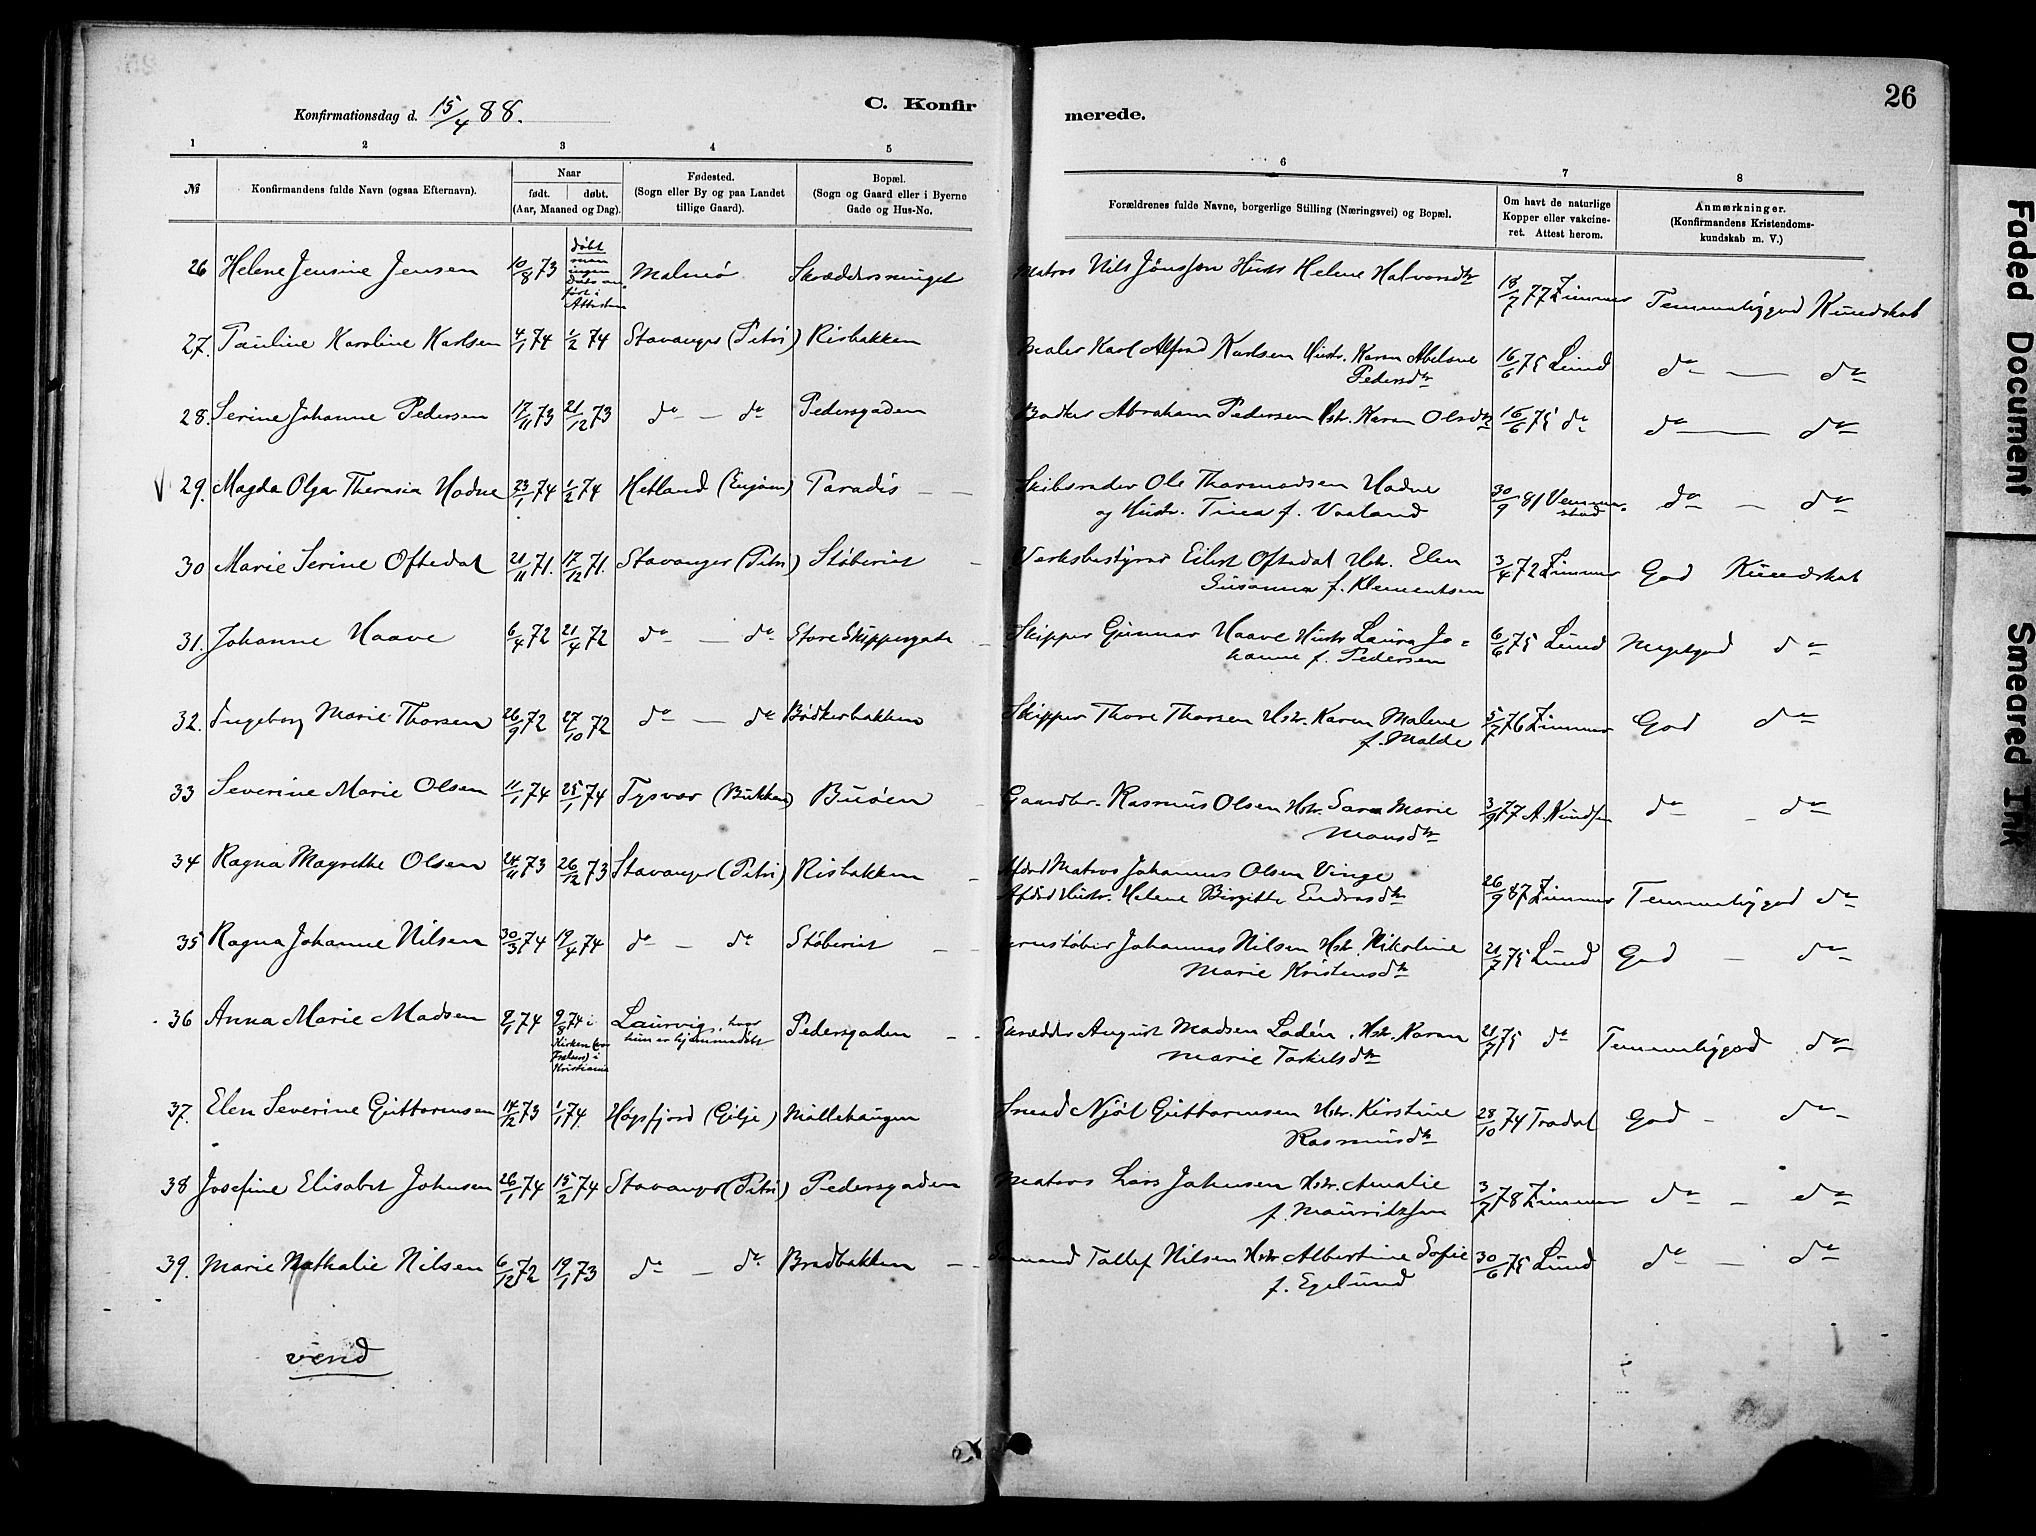 26
Konfirmationsdag d. 15/4 88.
C. Konfir
merede.
1 2 3 4 5 6 7 8
№
Konfirmandens fulde Navn (ogsaa Efternavn).
Naar
født. døbt.
(Aar, Maaned og Dag).
Fødested.
(Sogn eller By og paa Landet
tillige Gaard).
Bopæl.
(Sogn og Gaard eller i Byerne
Gade og Hus-No.
Forældrenes fulde Navne, borgerlige Stilling (Næringsvei) og Bopæl.
Om havt de naturlige
Kopper eller vakcine-
ret. Attest herom.
Anmærkninger.
(Konfirmandens Kristendoms-
kundskab m. V.)
26 Helene Jensine Jensen 10/8 73 døbt men ingen Dato anført i Attesten Malmö Skræddersmuget Matros Nils Jönsson Hustr Helene Halvorsdtr 18/7 77 Zimmer Temmeliggod Kundskab
27. Pauline Karoline Karlsen 4/1 74 1/2 74 Stavanger (Petri) Risbakken Karl Alfred Karlsen Hustr. Karen Abelone
Pedersdtr 16/6 75 Lund do — do
28. Serine Johanne Pedersen 17/11 73 21/12 73 do — do Pedersgaden Bødker Abraham Pedersen Hstr. Karen Olsdtr 16/6 75 do do — do
29. Magda Olga Therasia Hodne 23/1 74 1/2 74 Hetland (Engøen) Paradis Skibsreder Ole Thormodsen Hodne
og Hustr. Tinea f. Vaaland 30/9 81 Vennerstad do — do
30 Marie Serine Oftedal 21/11 71. 17/12 71. Stavanger (Petri) Støberiet Verksbestyrer Eilert Oftedal Hstr. Elen
Susanna f. Klementsen 3/4 72 Zimmer God Kundskab
31. Johanne Haave 6/4 72 21/4 72 do — do Store Skippergate Skipper Gunnar Haave Hustr Laura Jo-
hanne f. Pedersen 6/6 75 Lund Megetgod do
32. Ingeborg Marie Thorsen 26/9 72 27/10 72 do — do Bødkerbakken Skipper Thore Thorsen Hstr. Karen Malene
f. Malde 5/7 76 Zimmer God do
33 Severine Marie Olsen 11/1 74 25/1 74 Tysvær (Bukken) Buøen Gaardbr. Rasmus Olsen Hstr. Sara Marie
Monsdtr 3/9 77 A. Knudsen do - do
34 Ragna Magrethe Olsen 24/11 73 26/12 73 Stavanger (Petri) Risbakken Afdød Matros Johannes Olsen Vinge
Afdød Hustr. Helene Birgitte Endresdtr 26/9 87 Zimmer Temmeliggod do
35 Ragna Johanne Nilsen 30/3 74 19/4 74 do — do Støberiet Jernstøber Johannes Nilsen Hstr. Nikoline
Marie Kristensdtr 21/7 75 Lund God — do
36 Anna Marie Madsen 9/1 74 9/8 74 i Kirken i Kristiania Laurvig, hvor
hun er hjemmedøbt Pedersgaden Skrædder August Madsen Ladén, Hstr. Karen
Marie Torkelsdtr 21/7 75 do Temmeliggod do
37. Elen Severine Guttormsen 14/12 73 1/1 74. Høgsfjord (Gilje) Møllehaugen Smed Njøl Guttormsen Hstr. Kirstine
Rasmusdtr 28/10 74 Tradal God - do
38 Josefine Elisabet Johnsen 26/1 74 15/2 74 Stavanger (Petri) Pedersgaden Matros Lars Johnsen Hstr. Amalie
f. Mauritzsen 3/7 78 Zimmer do — do
39. Marie Nathalie Nilsen 6/12 72 19/1 73 do — do Bredbakken Sømand Tollef Nilsen Hstr Albertine Sofie
f. Egelund 30/6 75 Lund do — do
vend
Faded Document
Smeared Ink